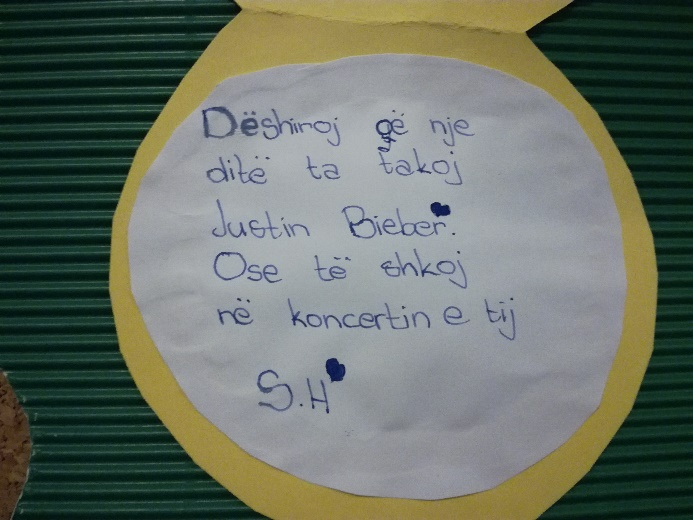 Dëshiroj që nje
ditë ta takoj
Justin Bieber.
Ose të shkoj
në koncertin e tij
S.H